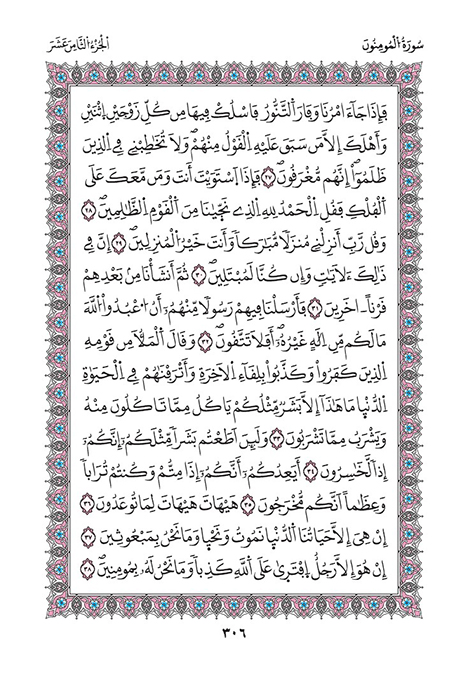 سُورَةُ الْمُومِنُونَ
الْجُزْءُ الثَّامِنَ عَشَرَ
فَإِذَا جَآءَ امْرُنَا وَفَارَ اَ۬لتَّنُّورُ فَاسْلُكْ فِيهَا مِن كُلِّ زَوْجَيْنِ اِ۪ثْنَيْنِ
وَأَهْلَكَ إِلَّا مَن سَبَقَ عَلَيْهِ اِ۬لْقَوْلُ مِنْهُمْۖ وَلَا تُخَٰطِبْنِے فِے اِ۬لذِينَ
ظَلَمُوٓاْۖ إِنَّهُم مُّغْرَقُونَۖ ٢٧ فَإِذَا اَ۪سْتَوَيْتَ أَنتَ وَمَن مَّعَكَ عَلَى
اَ۬لْفُلْكِ فَقُلِ اِ۬لْحَمْدُ لِلهِ اِ۬لذِے نَجَّيٰنَا مِنَ اَ۬لْقَوْمِ اِ۬لظَّٰلِمِينَۖ ٢٨
وَقُل رَّبِّ أَنزِلْنِے مُنزَلاٗ مُّبَٰرَكاٗ وَأَنتَ خَيْرُ اُ۬لْمُنزِلِينَۖ ٢٩ إِنَّ فِے
ذَٰلِكَ ءَلَايَٰتٖ وَإِن كُنَّا لَمُبْتَلِينَۖ ٣٠ ثُمَّ أَنشَأْنَا مِنۢ بَعْدِهِمْ
قَرْناً ـ اخَرِينَۖ ٣١ فَأَرْسَلْنَا فِيهِمْ رَسُولاٗ مِّنْهُمُۥٓ أَنُ ا۟عْبُدُواْ اُ۬للَّهَ
مَا لَكُم مِّنِ اِلَٰهٍ غَيْرُهُۥٓۖ أَفَلَا تَتَّقُونَۖ ٣٢ وَقَالَ اَ۬لْمَلَأُ مِن قَوْمِهِ
اِ۬لذِينَ كَفَرُواْ وَكَذَّبُواْ بِلِقَآءِ اِ۬لَاخِرَةِ وَأَتْرَفْنَٰهُمْ فِے اِ۬لْحَيَوٰةِ
اِ۬لدُّنْيَا مَا هَٰذَآ إِلَّا بَشَرٞ مِّثْلُكُمْ يَاكُلُ مِمَّا تَاكُلُونَ مِنْهُ
وَيَشْرَبُ مِمَّا تَشْرَبُونَۖ ٣٣ وَلَئِنَ اَطَعْتُم بَشَراٗ مِّثْلَكُمُۥٓ إِنَّكُمُۥٓ
إِذاٗ لَّخَٰسِرُونَۖ ٣٤ أَيَعِدُكُمُۥٓ أَنَّكُمُۥٓ إِذَا مِتُّمْ وَكُنتُمْ تُرَاباٗ
وَعِظَٰماً اَنَّكُم مُّخْرَجُونَۖ ٣٥ هَيْهَاتَ هَيْهَاتَ لِمَا تُوعَدُونَۖ ٣٦
إِنْ هِيَ إِلَّا حَيَاتُنَا اَ۬لدُّنْيَا نَمُوتُ وَنَحْيَا وَمَا نَحْنُ بِمَبْعُوثِينَۖ ٣٧
إِنْ هُوَ إِلَّا رَجُلٌ اِ۪فْتَرَىٰ عَلَى اَ۬للَّهِ كَذِباٗ وَمَا نَحْنُ لَهُۥ بِمُومِنِينَۖ ٣٨
٣٠٦